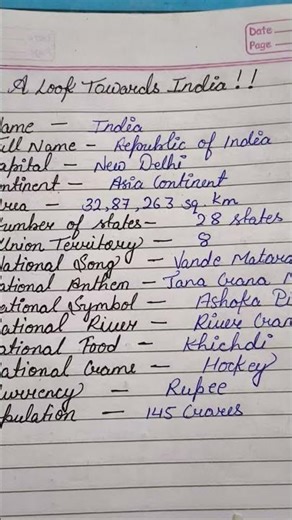 Date
Page
A Look Towards India !!
ame — India
ull Name — Republic of India
apital — New Delhi
ntinent — Asia Continent
rea — 32,87,263 sq. km
umber of states — 28 states
Union Territory — 8
National Song — Vande Matara
ational Anthem — Jana Gana M
ational Symbol — Ashoka Pi
ational River — River Gan
ational Food — Khichdi
ational Game — Hockey
urrency — Rupee
pulation — 145 Crores